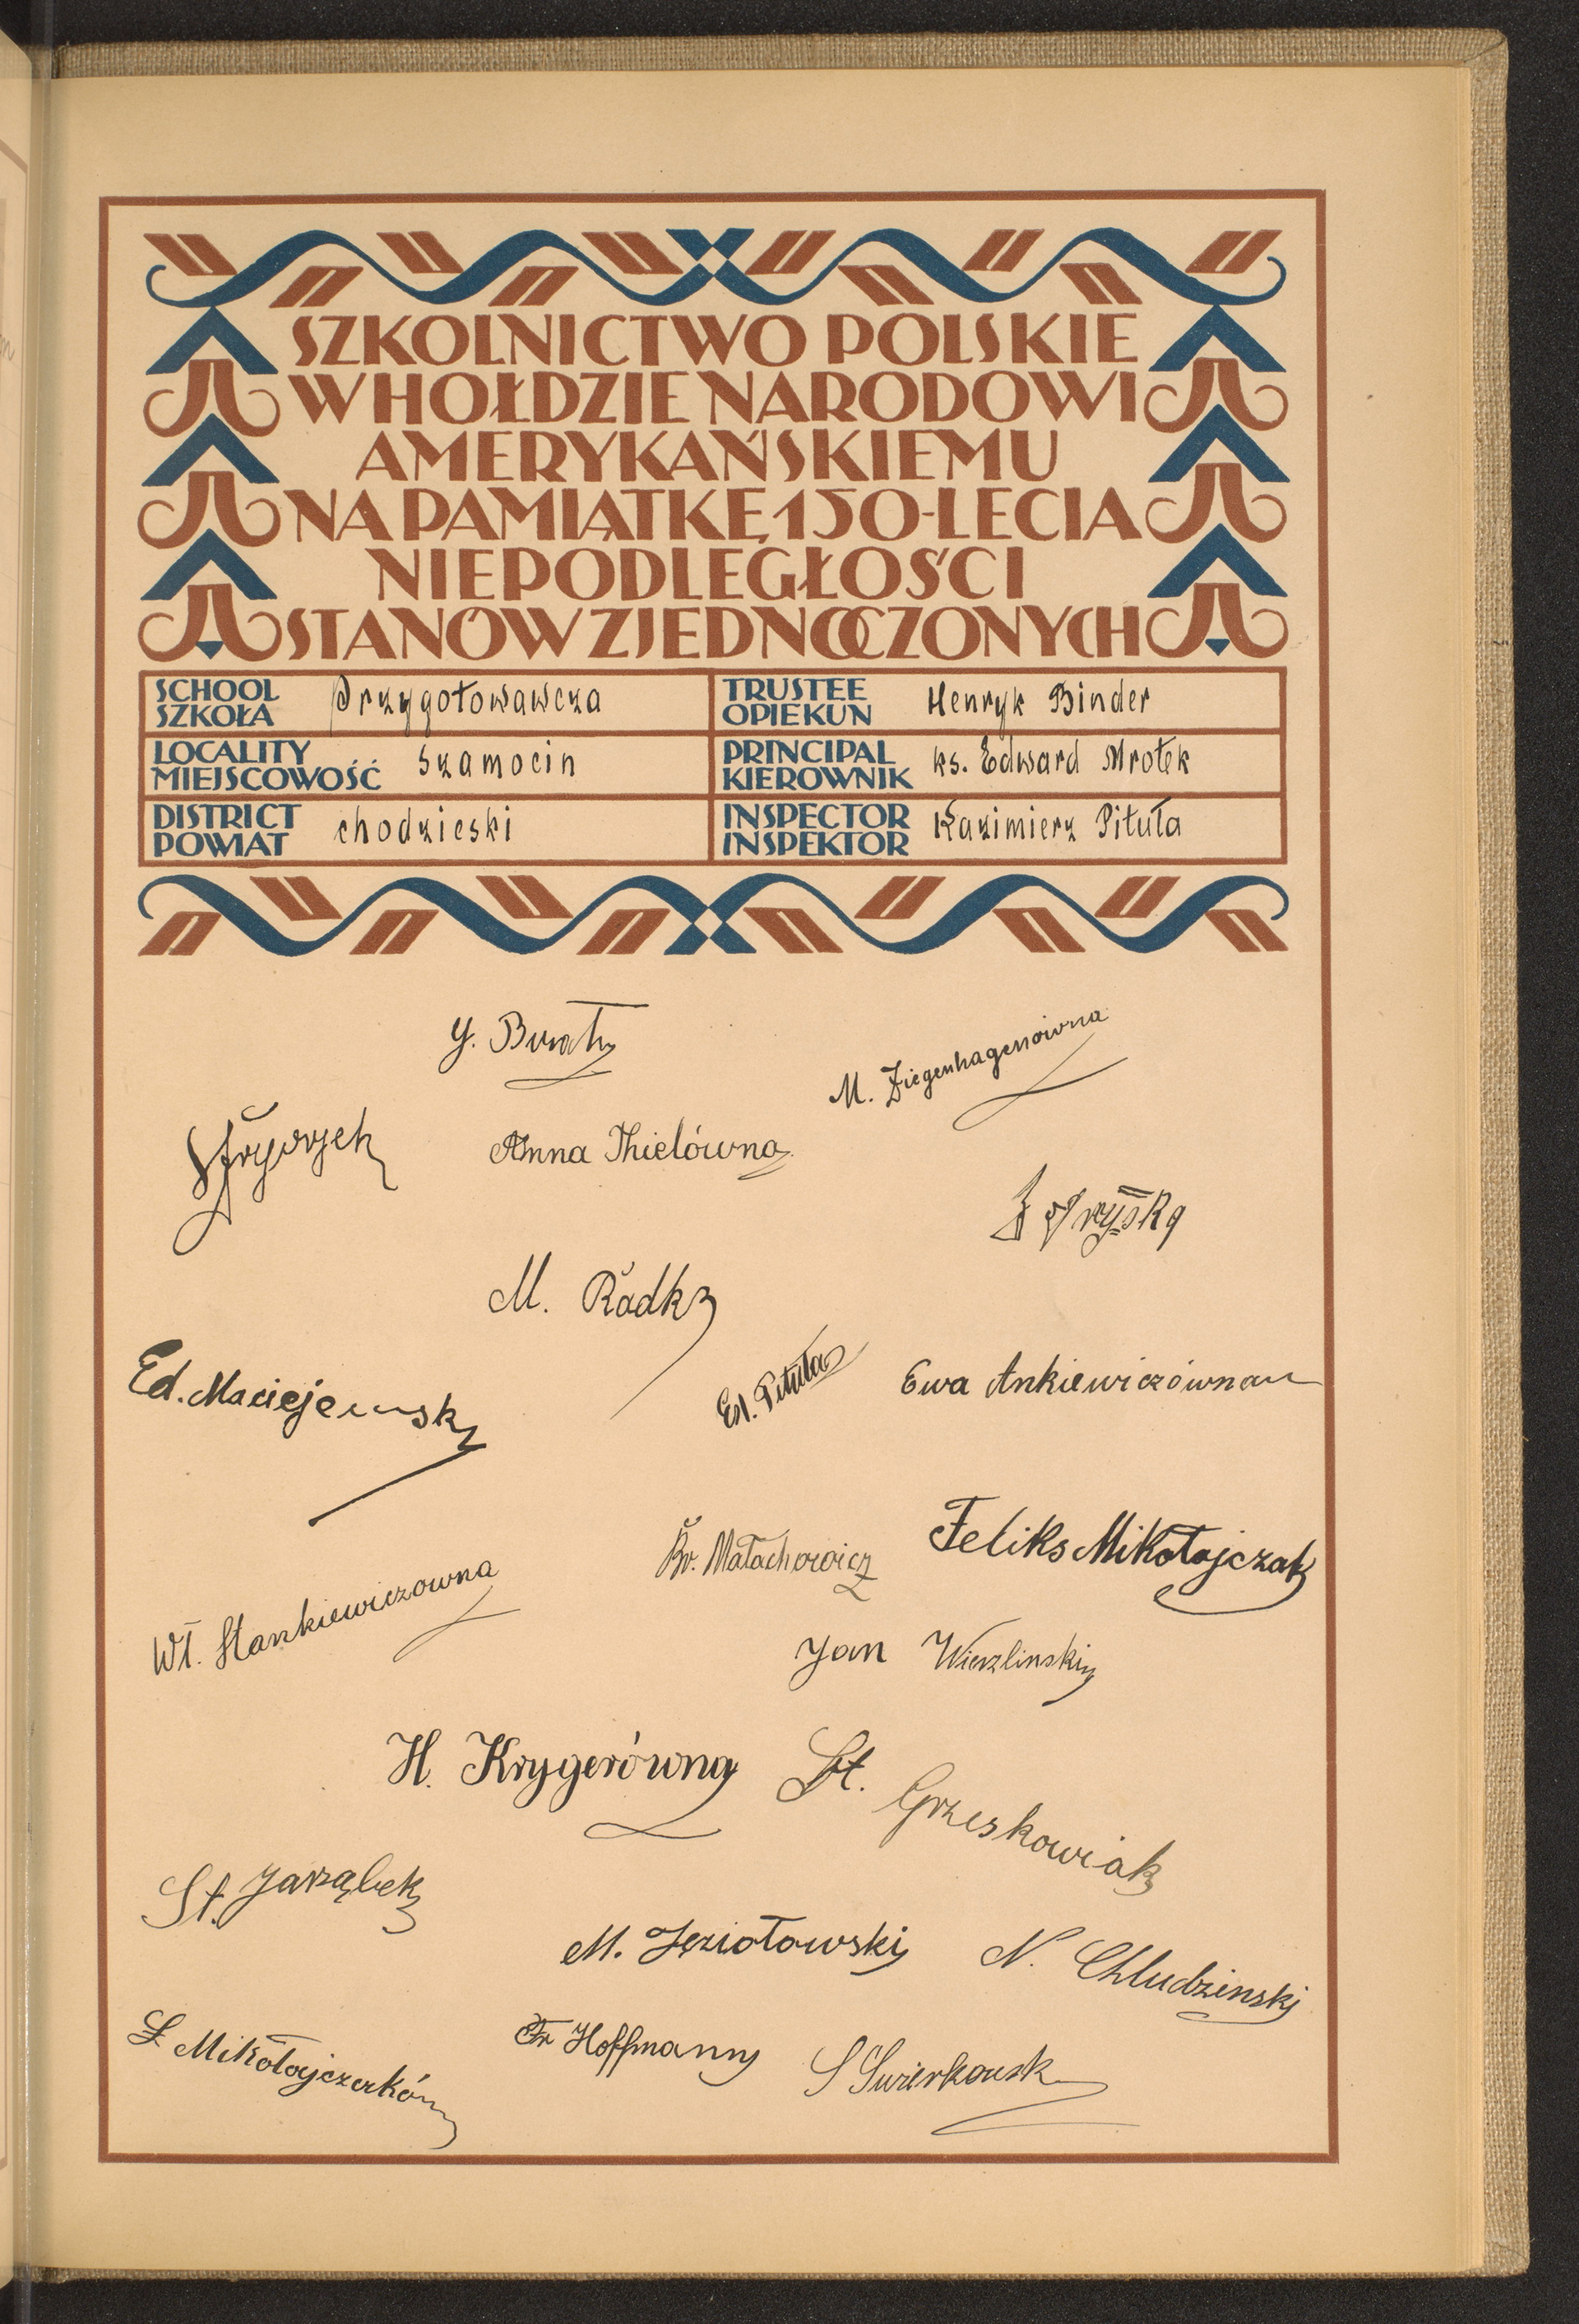 SZKOLNICTWO POLSKIE
W HOŁDZIE NARODOWI
AMERYKAŃSKIEMU
NA PAMIĄTKĘ 150-LECIA
NIEPODLEGŁOŚCI
STANÓW ZJEDNOCZONYCH
SCHOOL
SZKOŁA
Przygotowawcza
TRUSTEE
OPIEKUN
Henryk Binder
LOCALITY
MIEJSCOWOŚĆ
Szamocin
PRINCIPAL
KIEROWNIK
ks. Edward Mrotek
DISTRICT
POWIAT
chodzieski
INSPECTOR
INSPEKTOR
Kazimierz Pituła
M. Ziegenhagenówna
Anna Thielówna
M.
Ed. Maciejewski
Ed. Pituła
Ewa Ankiewiczówna
Feliks Mikołajczak
Br. Małachowicz
Wł. Stankiewiczowna
Jan Wierzlinski
H. Krygerówna
St. Grzeskowiak
St. Jarząbek
M. Jęziołowski
N. Chludzinski
Fr Hoffmann
S Swierkowsk